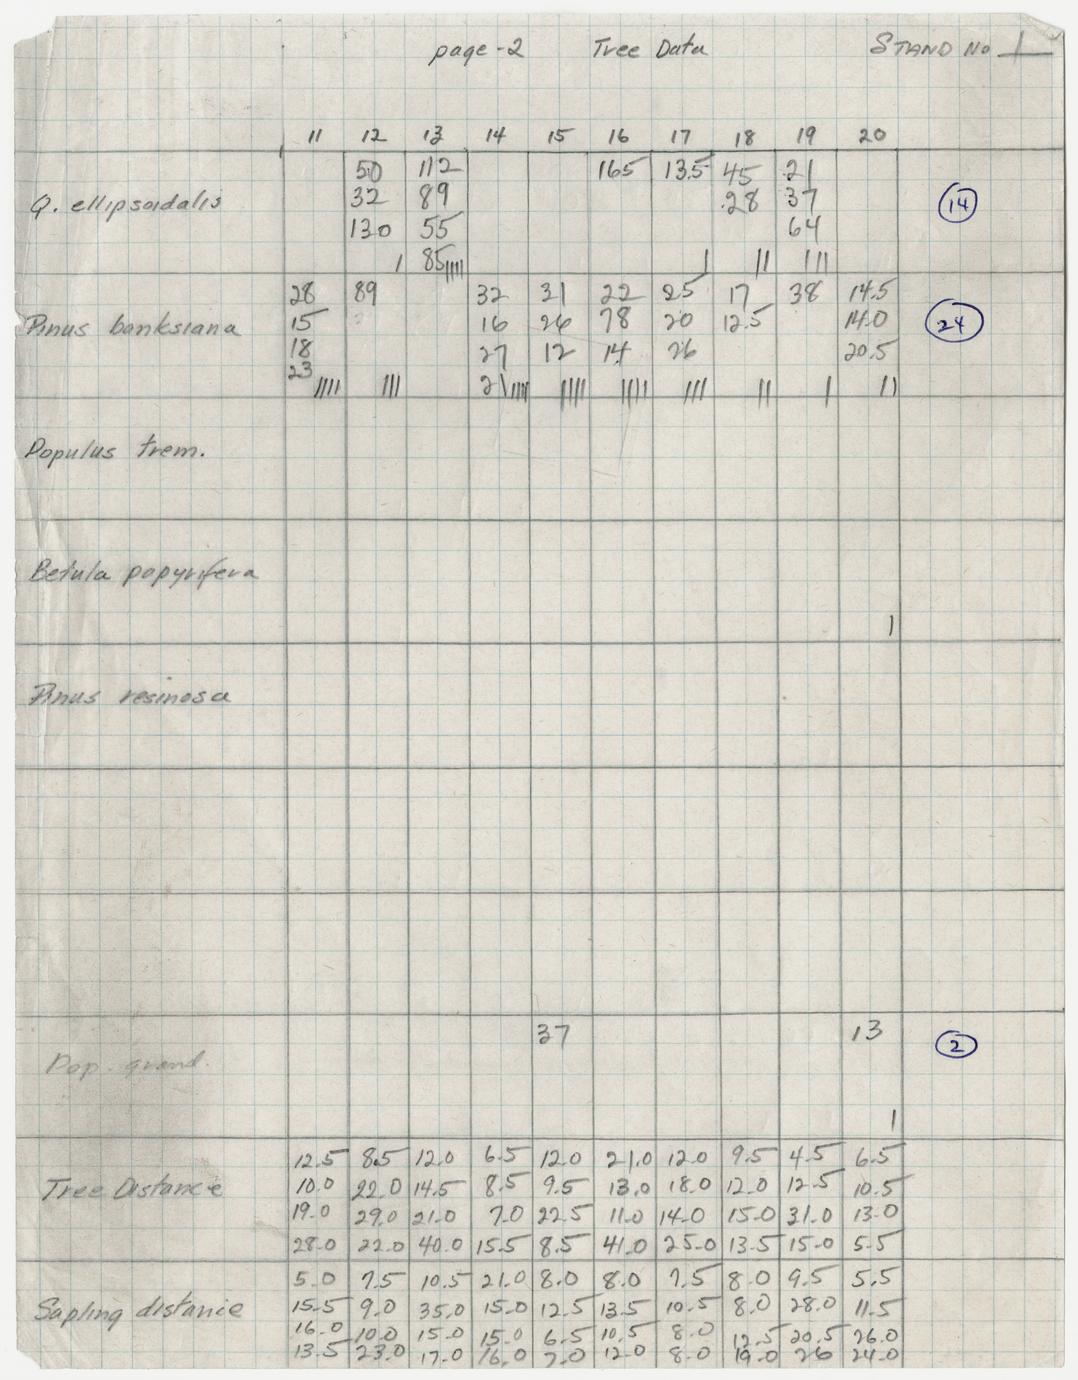 page-2 Tree Data STAND No 1
11 12 13 14 15 16 17 18 19 20
50 112 165 13.5 45 21
Q. ellipsoidalis 32 89 28 37 14
130 55 64
| 85 |||| | || |||
28 89 32 31 22 25 17 38 14.5
Pinus banksiana 15 16 26 78 20 12.5 14.0 24
18 27 12 14 26 20.5
23 |||| ||| 21 |||| |||| |||| ||| || | ||
Populus trem.
Betula papyrifera
|
Pinus resinosa
37 13
Pop. grand. 2
|
12.5 8.5 12.0 6.5 12.0 21.0 12.0 9.5 4.5 6.5
Tree Distance 10.0 22.0 14.5 8.5 9.5 13.0 18.0 12.0 12.5 10.5
19.0 29.0 21.0 7.0 22.5 11.0 14.0 15.0 31.0 13.0
28.0 22.0 40.0 15.5 8.5 41.0 25.0 13.5 15.0 5.5
5.0 7.5 10.5 21.0 8.0 8.0 7.5 8.0 9.5 5.5
Sapling distance 15.5 9.0 35.0 15.0 12.5 13.5 10.5 8.0 28.0 11.5
16.0 10.0 15.0 15.0 6.5 10.5 8.0 12.5 20.5 26.0
13.5 23.0 17.0 16.0 7.0 12.0 8.0 19.0 26 24.0